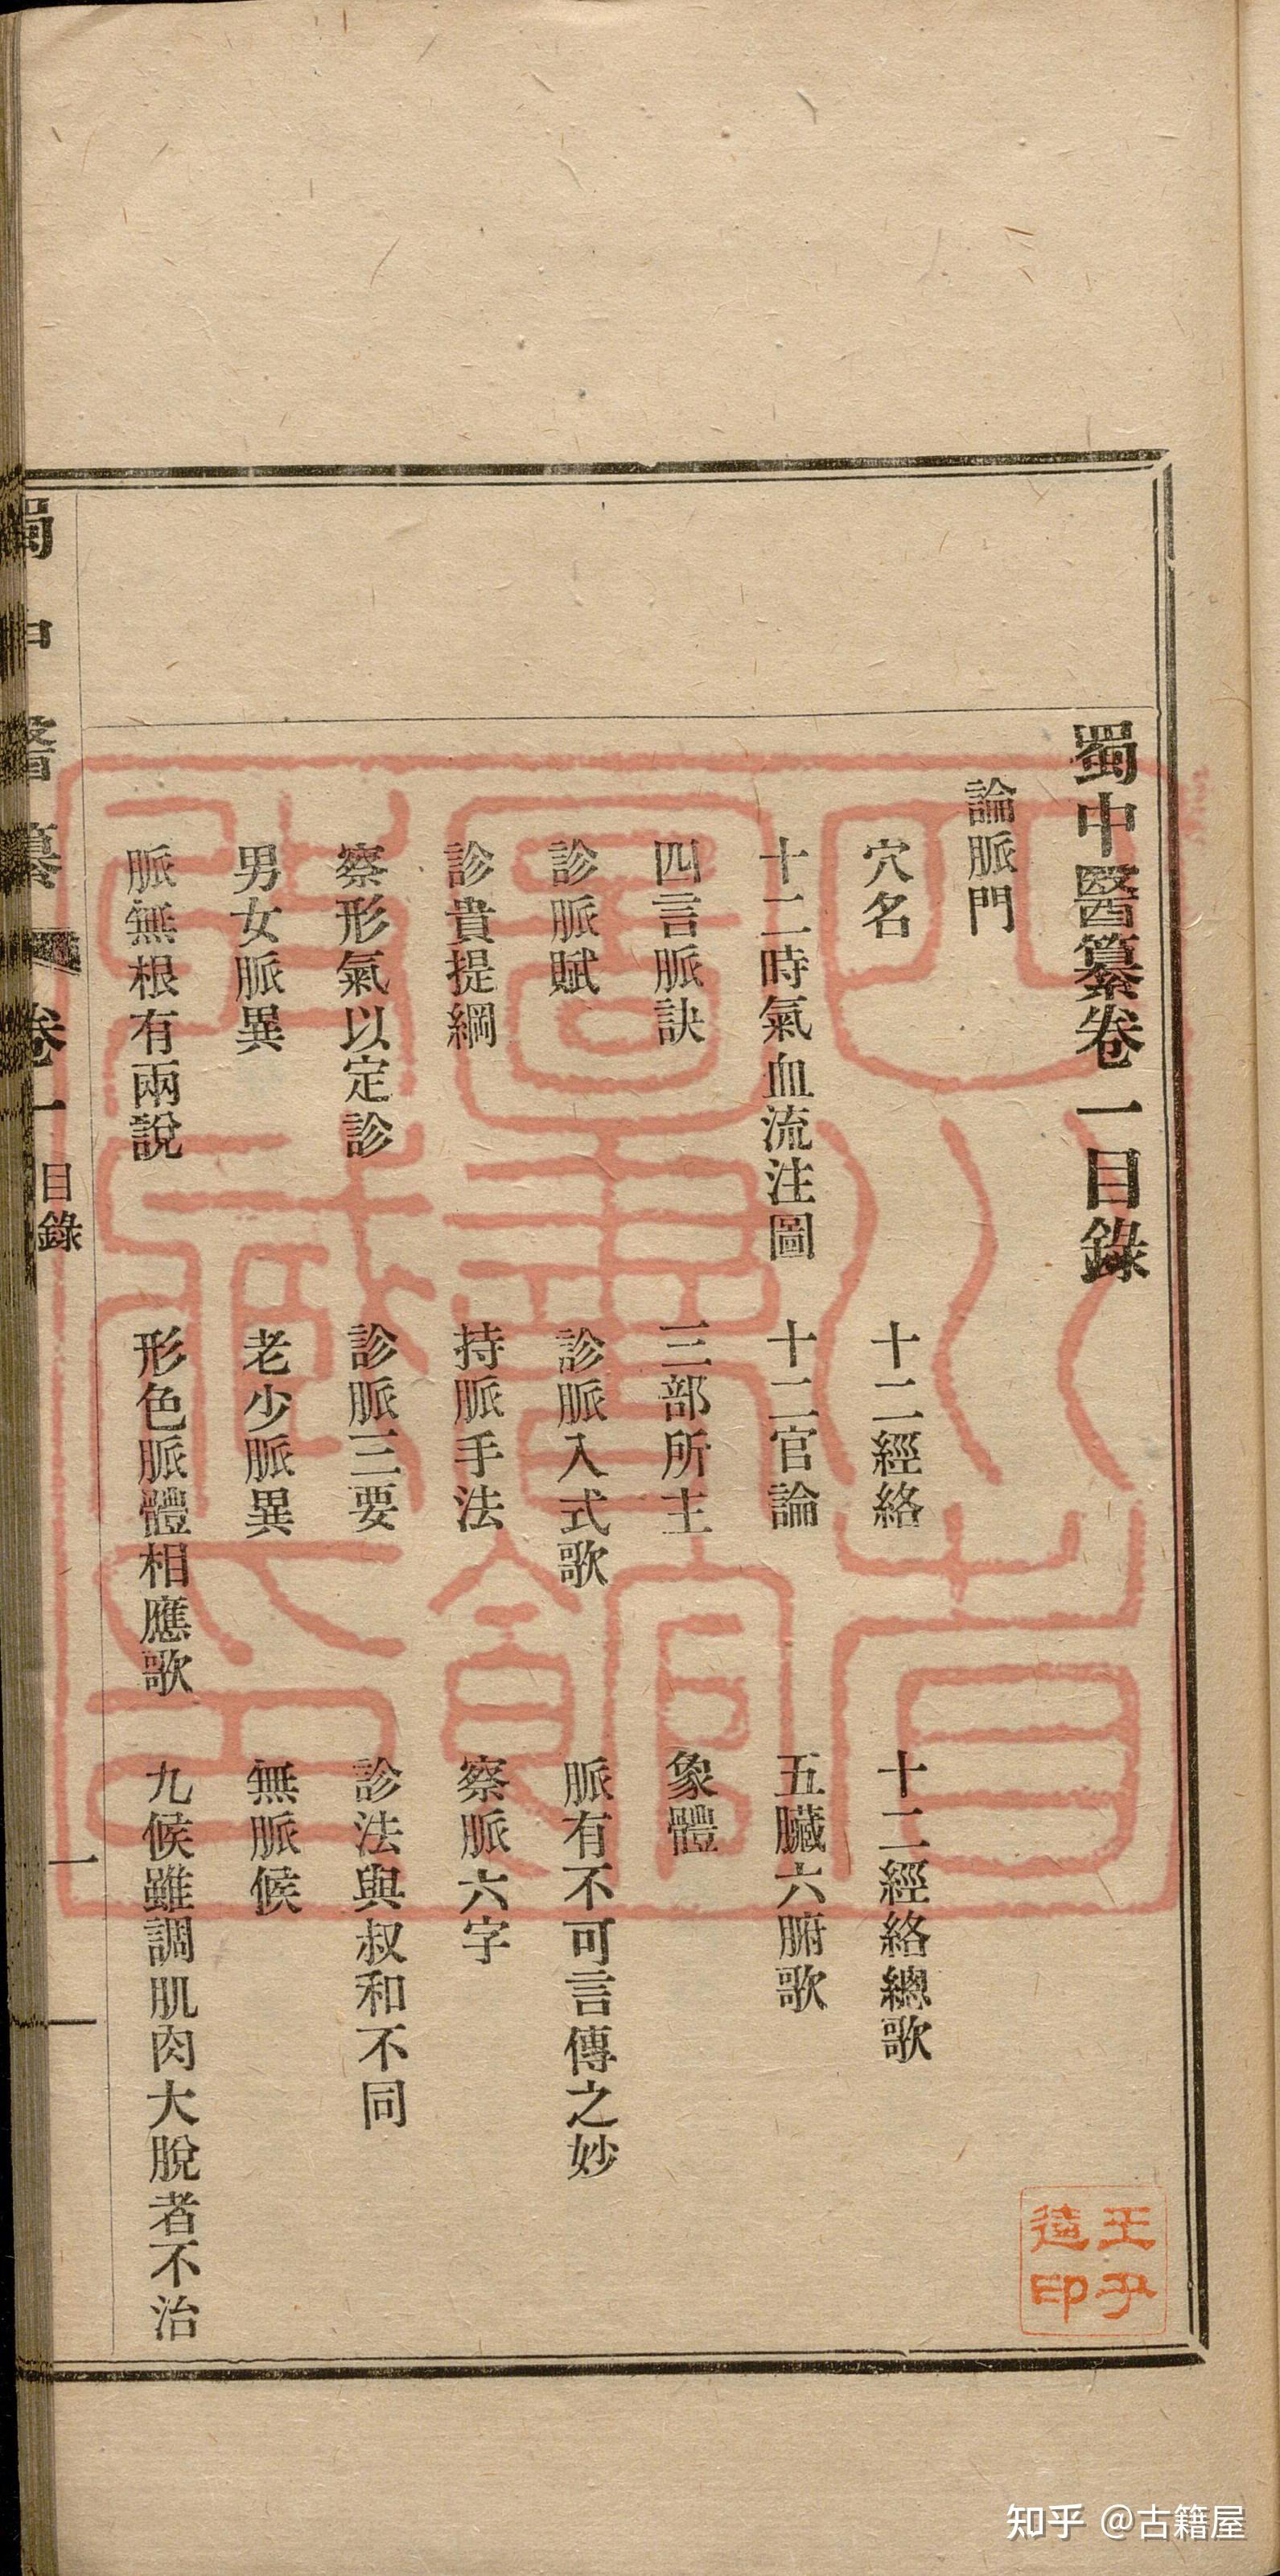 蜀中醫纂卷一目錄
論脈門
穴名　十二經絡　十二經絡總歌
十二時氣血流注圖　十二官論　五臟六腑歌
四言脈訣　三部所主　象體
診脈賦　診脈入式歌　脈有不可言傳之妙
診貴提綱　持脈手法　察脈六字
察形氣以定診　診脈三要　診法與叔和不同
男女脈異　老少脈異　無脈候
脈無根有兩說　形色脈體相應歌　九候雖調肌肉大脫者不治
蜀中醫纂　卷一　目錄　一
王尹
造印
知乎 @古籍屋